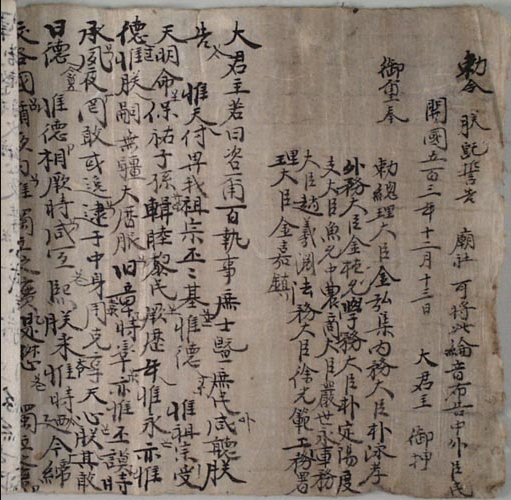 勅令 朕旣誓告 廟社 可將此綸音布告中外臣民
開國五百三年十二月十三日 大君主 御押
御重奉 勅總理大臣金弘集內務大臣朴泳孝
外務大臣金允植學務大臣朴定陽度
支大臣魚允中農商大臣嚴世永軍務
大臣趙羲淵法務大臣徐光範工務署
理大臣金嘉鎭
大君主若曰咨爾百執事庶士曁庶民咸聽朕
告 惟天付畀我祖宗丕丕基惟德 惟祖宗受
天明命保祐子孫輯睦黎民厥歷年惟永亦惟
德惟朕嗣無疆大曆服 旧章時率亦惟丕謨時
承夙夜罔敢或 逮于中身用克享天心朕其敢
曰德 惟德相厥時咸 熙朕未惟時 迺今締
交各國 惟獨立